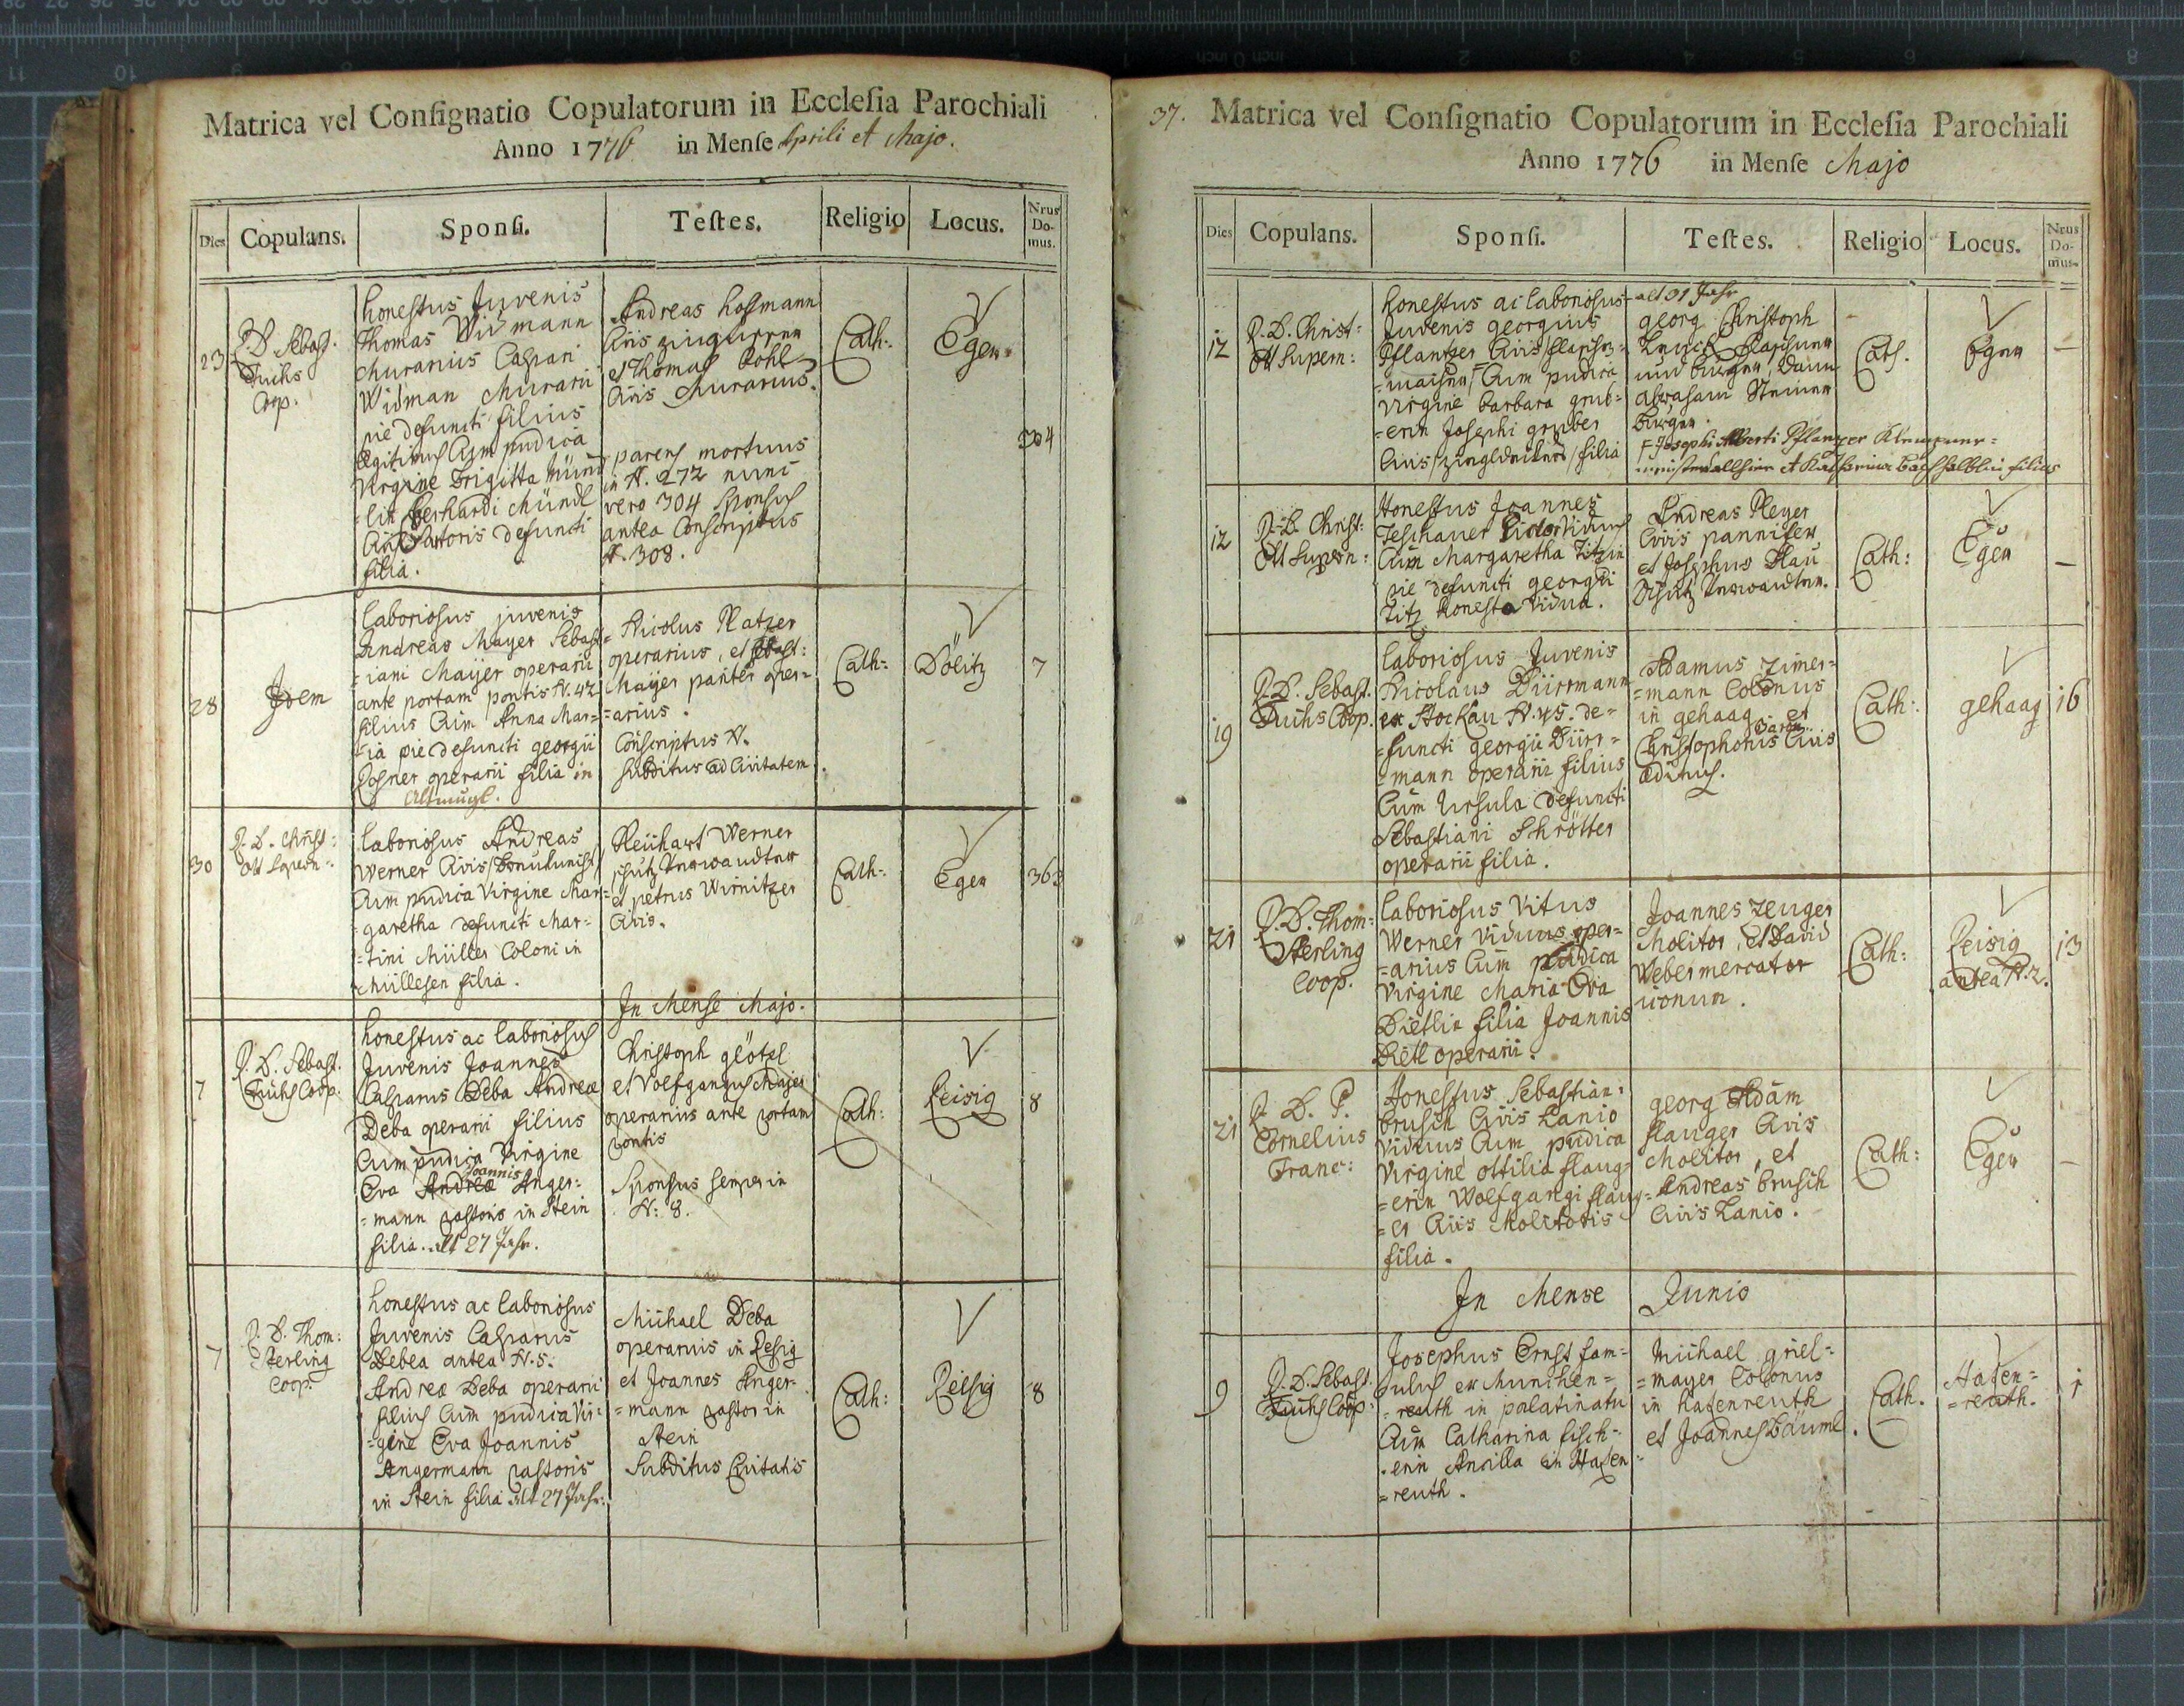 Matrica vel Consignatio Copulatorum in Ecclesia Parochiali
Anno 1776 in Mense Aprili et Majo.
Dies
Copulans.
Sponsi.
Testes.
Religio
Locus.
Nrus
Do-
mus.
23
P. D. Sebast.
Fuchs
Coop.
honestus Juvenis
Thomas Widmann
Murarius Caspari
Widman Murarii
pie defuncti filius
legitimus Cum pudica
Virgine Brigitta Münd
=lin Gerhardi Mündl
Civis Sartoris defuncti
filia.
Andreas hoffmann
Civis
et Thomas
Civis Murarius.
parens mortuus
in N. 272 nunc
vero 304 Sponsus
antea Conscriptus
N. 308.
Cath:
Eger
304
28
Idem
laboriosus juvenis
Andreas Mayer Sebast
=iani Maijer operarii
ante portam pontis N. 42
filius Cum Anna Mar=
=ia pie defuncti georgii
operarii filia in
Altmugl.
Nicolus Platzer
operarius, et Sebast:
Maijer pariter oper=
=arius.
Conscriptus N.
subditus ad Civitatem
Cath:
Dölitz
7
30
P. D. Christ:
Ott Supern:
laboriosus Andreas
Werner Civis
Cum pudica Virgine Mar=
=garetha defuncti Mar=
=tini Müller Coloni in
Müllesen filia.
Reichart Werner
schutz Verwandter
et petrus Wirnitzer
Civis.
Cath:
Eger
363
In Mense Majo.
7
P. D. Sebast.
Fuchs Coop.
honestus ac laboriosus
Juvenis Joannes
Casparus Deba Andreæ
Deba operarii filius
Cum pudica Virgine
Joannis
Eva Andreæ Anger=
=mann pastoris in Stein
filia. alt 27 Jahr.
Christoph glötzl
et Wolfgangus Majer
operarius ante portam
pontis
Sponsus semper in
N: 8.
Cath:
Reisig
8
7
P. D. Thom:
Sterling
Coop.
honestus ac laboriosus
Juvenis Casparus
Debea antea N. 5.
Andreæ Deba operarii
filius Cum pudica Vir=
=gine Eva Joannis
Angermann pastoris
in Stein filia alt 27 Jahr.
Michael Deba
operarius in Resig
et Joannes Anger=
=mann pastor in
Stein
Subditus Civitatis
Cath:
Reisig
8
37.
Matrica vel Consignatio Copulatorum in Ecclesia Parochiali
Anno 1776 in Mense Majo
Dies
Copulans.
Sponsi.
Testes.
Religio
Locus.
Nrus
Do-
mus.
12
P. D. Christ=
Ott Supern:
honestus ac laboriosus
Juvenis georgius
Pflantzer Civis
Cum pudica
Virgine barbara grub=
=erin Josephi gruber
Civis filia
alt 31 Jahr
georg Christoph
und burger, dann
abraham Steiner
burger.
Josephi Alberti Pflanzer
filius
Cath.
Eger
—
12
P. D. Christ:
Ott Supern:
Honestus Joannes
Teschauer Viduus
Cum Margaretha Titzin
pie defuncti georgii
Titz honesta Vidua.
Andreas Pleyer
Civis pannifex
et Josephus Plau
Schutz Verwandter.
Cath:
Eger
—
19
P. D. Sebast.
Fuchs Coop.
laboriosus Juvenis
Nicolaus Dürrmann
ex Stockau N. 45. de=
=functi georgii Dürr=
=mann operarii filius
Cum Ursula defuncti
Sebastiani Schrötter
operarii filia.
Adamus Zimer=
=mann Colonus
in gehaag et
Christophorus Civis
ædituus.
Cath:
gehaag
16
21
P. D. Thom:
Sterling
Coop.
laboriosus Vitus
Werner Viduus oper=
=arius Cum pudica
Virgine Maria Eva
Dietlin filia Joannis
Dietl operarii.
Joannes Zenger
Molitor, et David
Weber mercator
Cath:
Reisig
antea N. 2.
13
21
P. D. P.
Cornelius
Franc:
Honestus Sebastian:
brusch Civis Lanio
Viduus Cum pudica
Virgine Ottilia flaug=
=erin Wolfgangi flaug=
=er Civis Molitoris
filia.
georg Adam
flauger Civis
Molitor, et
Andreas brusch
Civis Lanio.
Cath:
Eger
—
In Mense Junio
9
P. D. Sebast.
Fuchs Coop.
Josephus Ernst fam=
=ulus ex Munchen=
=reuth in palatinatu
Cum Catharina fisch=
=erin Ancilla in Hasen
=reuth.
Michael griel=
=mayer Colonus
in hasenreuth
et Joannes Bäuml.
Cath.
Hasen=
=reuth.
1